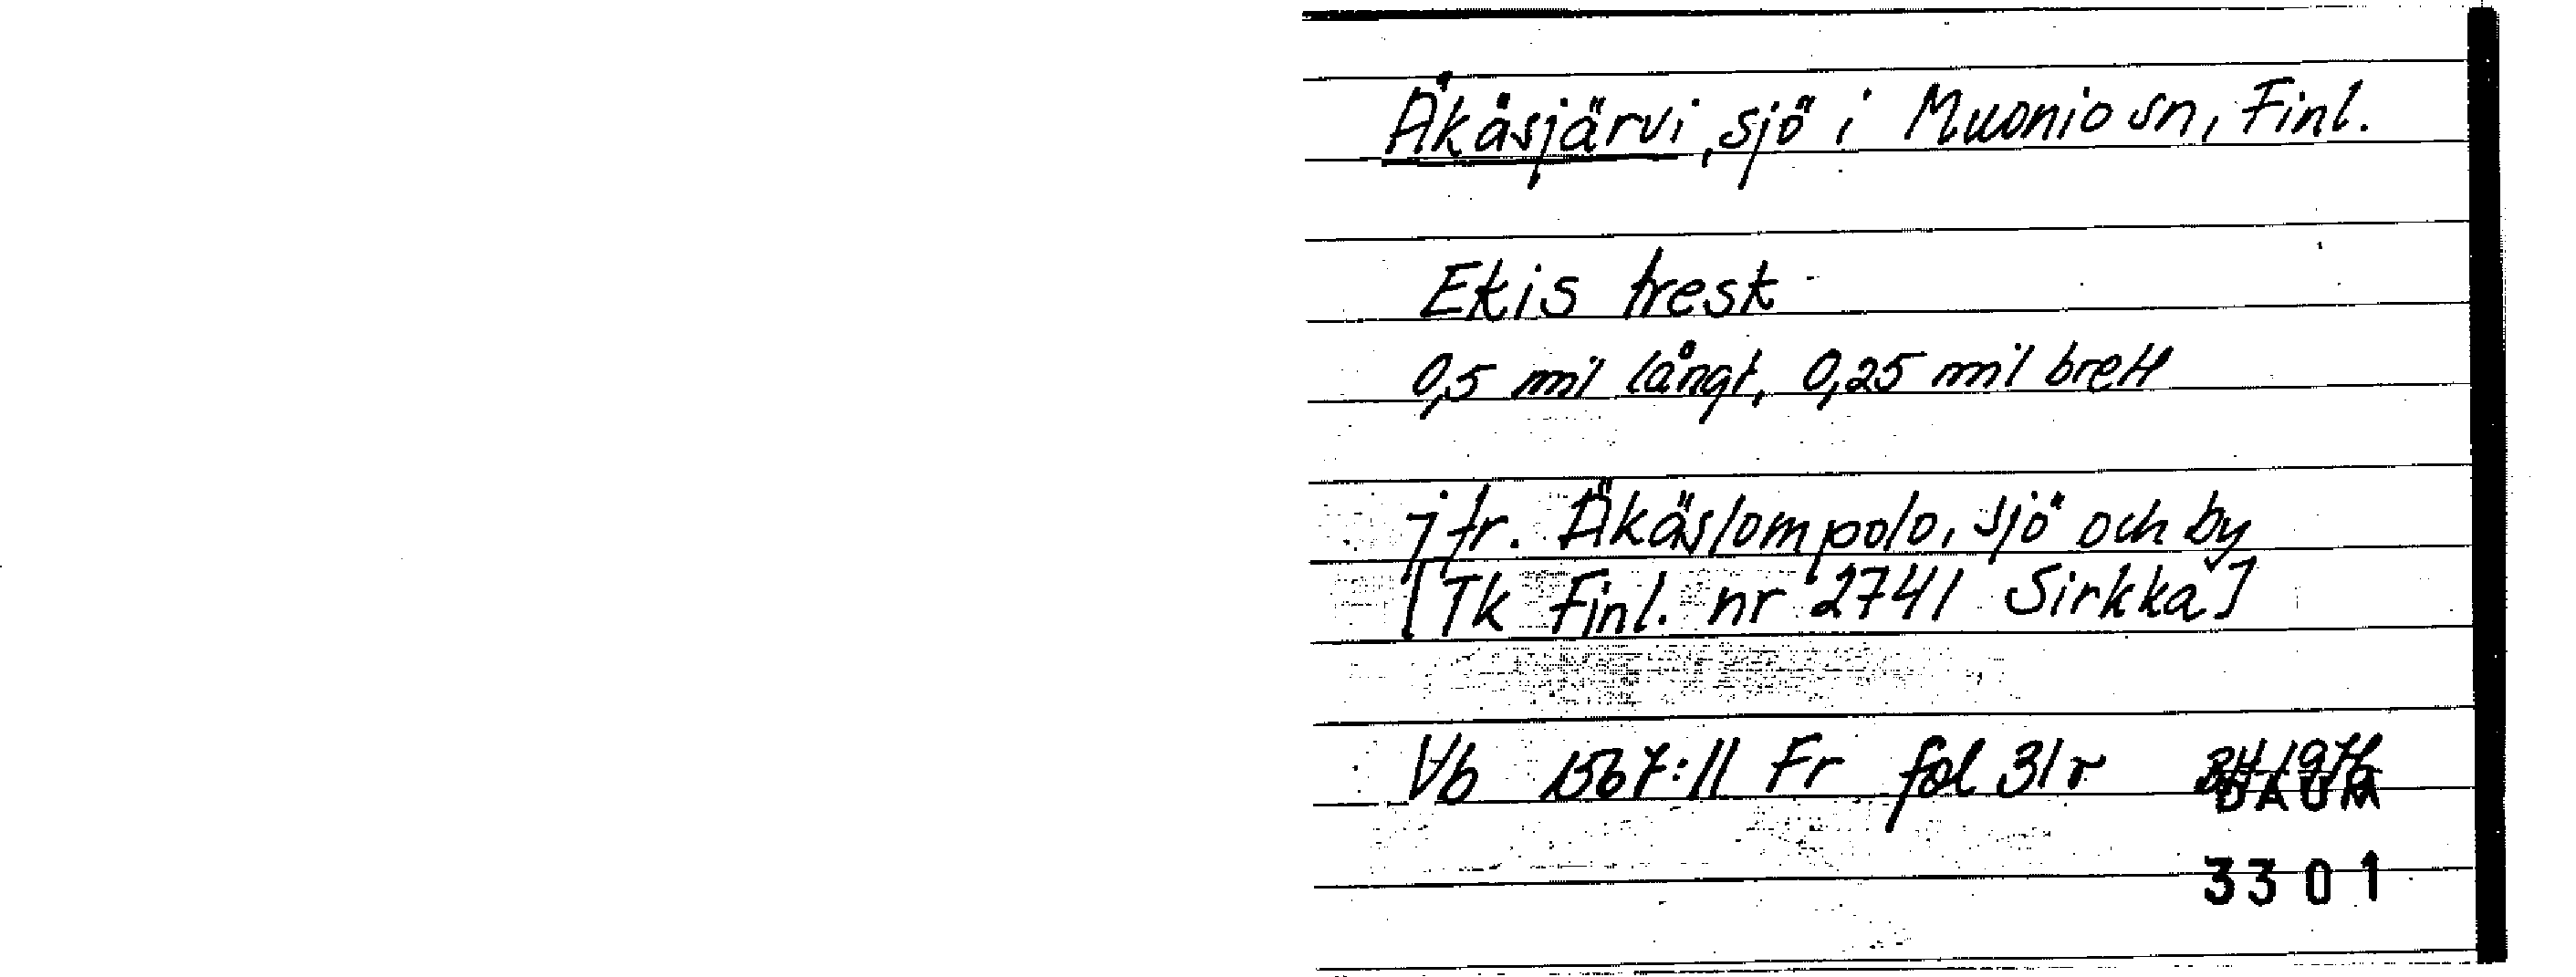 Åkåsjärvi, sjö i Muonio sn, Finl.
Ekis tresk
0,5 mil långt, 0,25 mil brett
jfr. Äkäslompolo, sjö och by
[Tk Finl. nr 2741 Sirkka]
Vb 1567:11 Fr fol 31r BH 1976
DAUM
3301